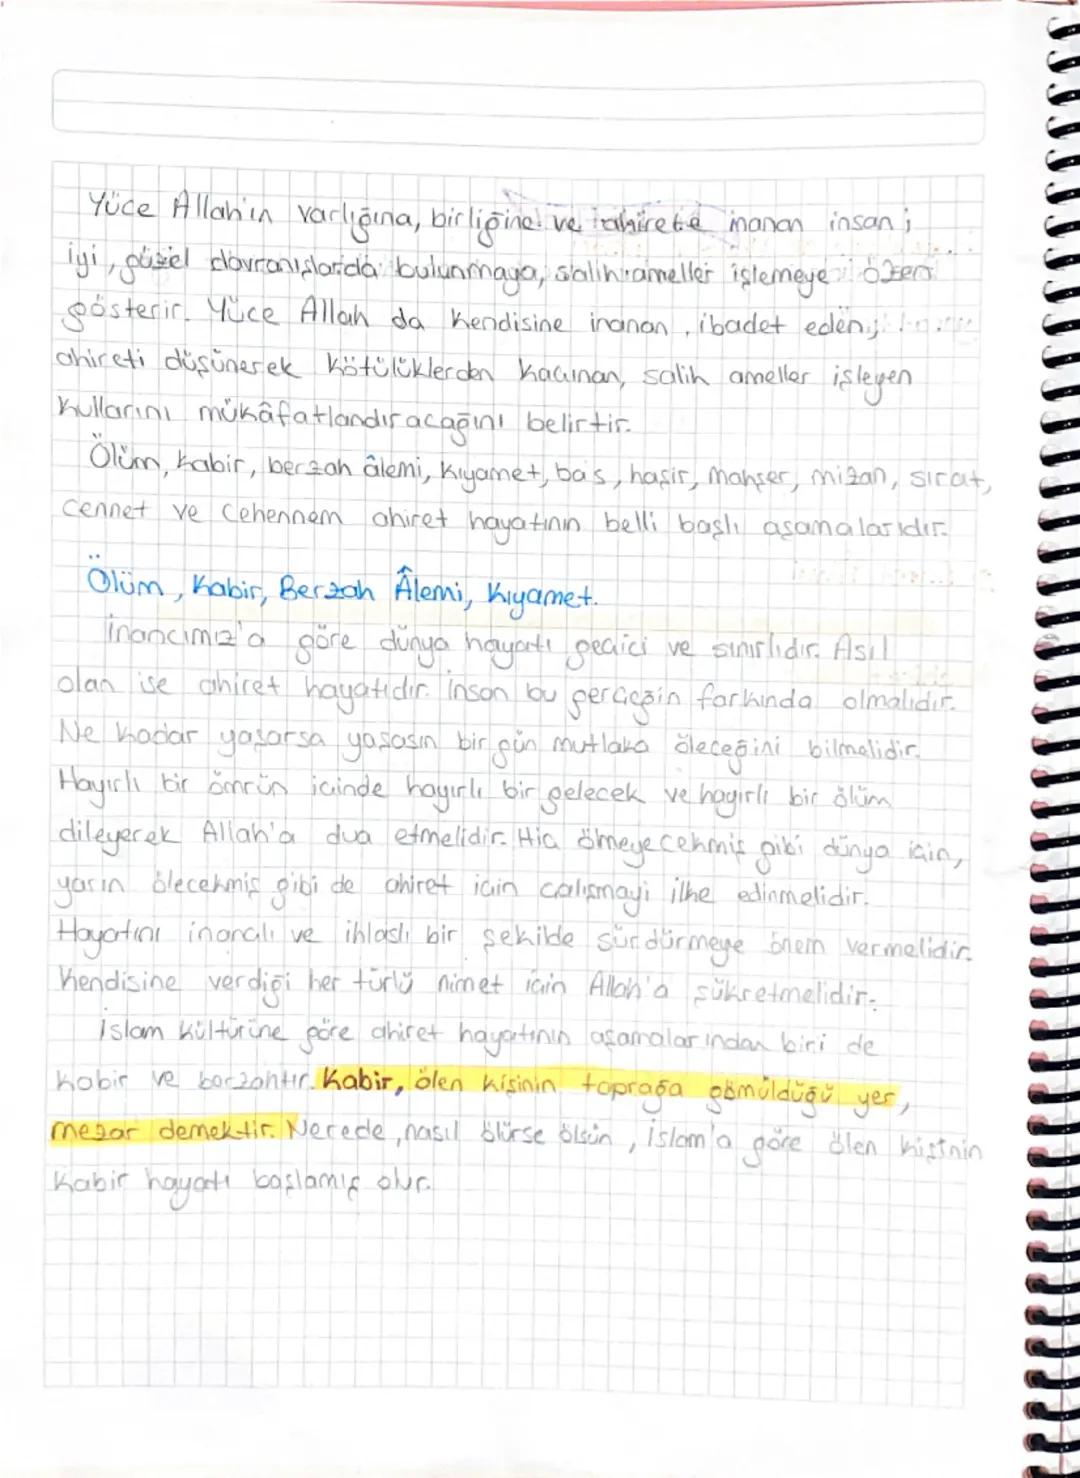 Yüce Allah'ın varlığına, birliğine ve ahirete inanan insan;
iyi, güzel davranışlarda bulunmaya, salih ameller işlemeye özen
gösterir. Yüce Allah da kendisine inanan, ibadet eden,
ahireti düşünerek kötülüklerden kaçınan, salih ameller işleyen
kullarını mükâfatlandıracağını belirtir.
Ölüm, kabir, berzah âlemi, kıyamet, ba's, haşir, mahşer, mizan, sırat,
cennet ve cehennem ahiret hayatının belli başlı aşamalarıdır.
Ölüm, Kabir, Berzah Âlemi, Kıyamet.
İnancımız'a göre dünya hayatı geçici ve sınırlıdır. Asıl
olan ise ahiret hayatıdır. İnsan bu gerçeğin farkında olmalıdır.
Ne kadar yaşarsa yaşasın bir gün mutlaka öleceğini bilmelidir.
Hayırlı bir ömrün içinde hayırlı bir gelecek ve hayırlı bir ölüm
dileyerek Allah'a dua etmelidir. Hiç ölmeyecekmiş gibi dünya için,
yarın ölecekmiş gibi de ahiret için çalışmayı ilke edinmelidir.
Hayatını inançlı ve ihlaslı bir şekilde sürdürmeye önem vermelidir.
Kendisine verdiği her türlü nimet için Allah'a şükretmelidir.
İslam kültürüne göre ahiret hayatının aşamalarından biri de
kabir ve berzahtır. Kabir, ölen kişinin toprağa gömüldüğü yer,
mezar demektir. Nerede, nasıl ölürse ölsün, İslam'a göre ölen kişinin
kabir hayatı başlamış olur.